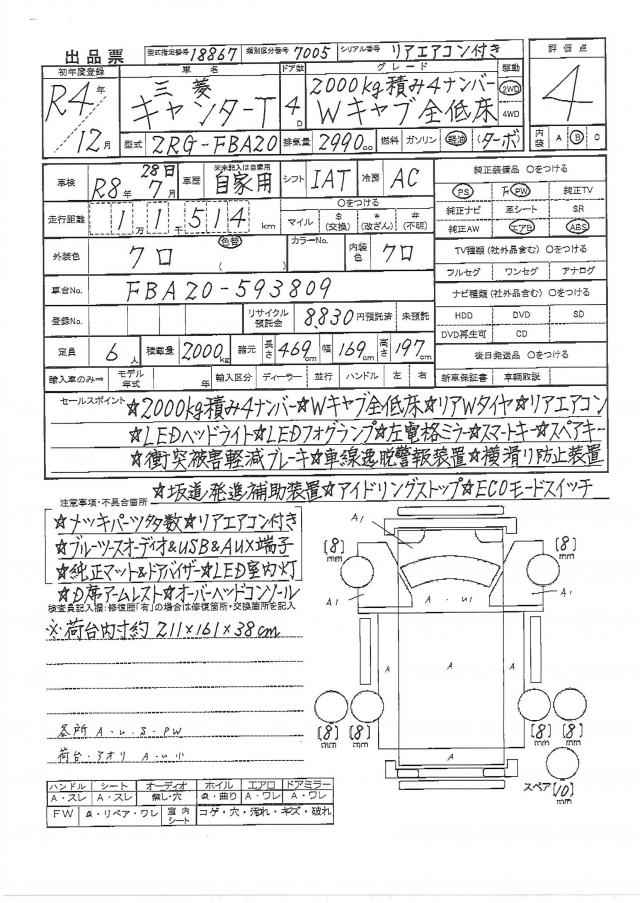 出品票 型式指定番号 18867 類別区分番号 7005 シリアル番号 リアエアコン付き 評価点
初年度登録 車名 ドア数 グレード 駆動
R4年 三菱 4D 2000kg積み4ナンバー 2WD 4
12月 キャンターT Wキャブ全低床 4WD
型式 2RG-FBA20 排気量 2990cc 燃料 ガソリン 軽油 (ターボ) 内装 A B C
車検 R8年 7月 28日 車歴 ※未記入は自家用 自家用 シフト IAT 冷房 AC 純正装備品 ○をつける
PS PW 純正TV
走行距離 1 1万 1千 514 km ○をつける マイル $(交換) *(改ざん) #(不明) 純正ナビ 革シート SR
純正AW エアB ABS
外装色 クロ 色替 ( ) カラーNo. 内装色 クロ TV種類(社外品含む) ○をつける
フルセグ ワンセグ アナログ
車台No. FBA20-593809 ナビ種類(社外品含む) ○をつける
登録No. リサイクル預託金 8,830 円預託済 未預託 HDD DVD SD
DVD再生可 CD
定員 6人 積載量 2000kg 諸元 長さ 469cm 幅 169cm 高さ 197cm 後日発送品 ○をつける
輸入車のみ⇒ モデル年式 年 輸入区分 ディーラー 並行 ハンドル 左 右 新車保証書 車輌取説
セールスポイント ☆2000kg積み4ナンバー☆Wキャブ全低床☆リアWタイヤ☆リアエアコン
☆LEDヘッドライト☆LEDフォグランプ☆左電格ミラー☆スマートキー☆スペアキー
☆衝突被害軽減ブレーキ☆車線逸脱警報装置☆横滑り防止装置
☆坂道発進補助装置☆アイドリングストップ☆ECOモードスイッチ
注意事項・不具合箇所
☆メッキパーツ多数☆リアエアコン付き
☆ブルーツースオーディオ&USB&AUX端子
☆純正マット&ドアバイザー☆LED室内灯
☆D席アームレスト☆オーバーヘッドコンソール
検査員記入欄:修復歴「有」の場合は修復箇所・交換箇所を記入
※荷台内寸約 211×161×38cm
各所 A・U・S・PW
荷台・アオリ A・U小
A1
[8] mm [8] mm
A1 A・U1 A1
A A A
[8] mm [8] mm [8] mm [8] mm
A
スペア [10] mm
ハンドル シート オーディオ ホイル エアロ ドアミラー
A・スレ A・スレ 無し・穴 a・曲り A・ワレ A・ワレ
FW a・リペア・ワレ 室内シート コゲ・穴・汚れ・キズ・破れ